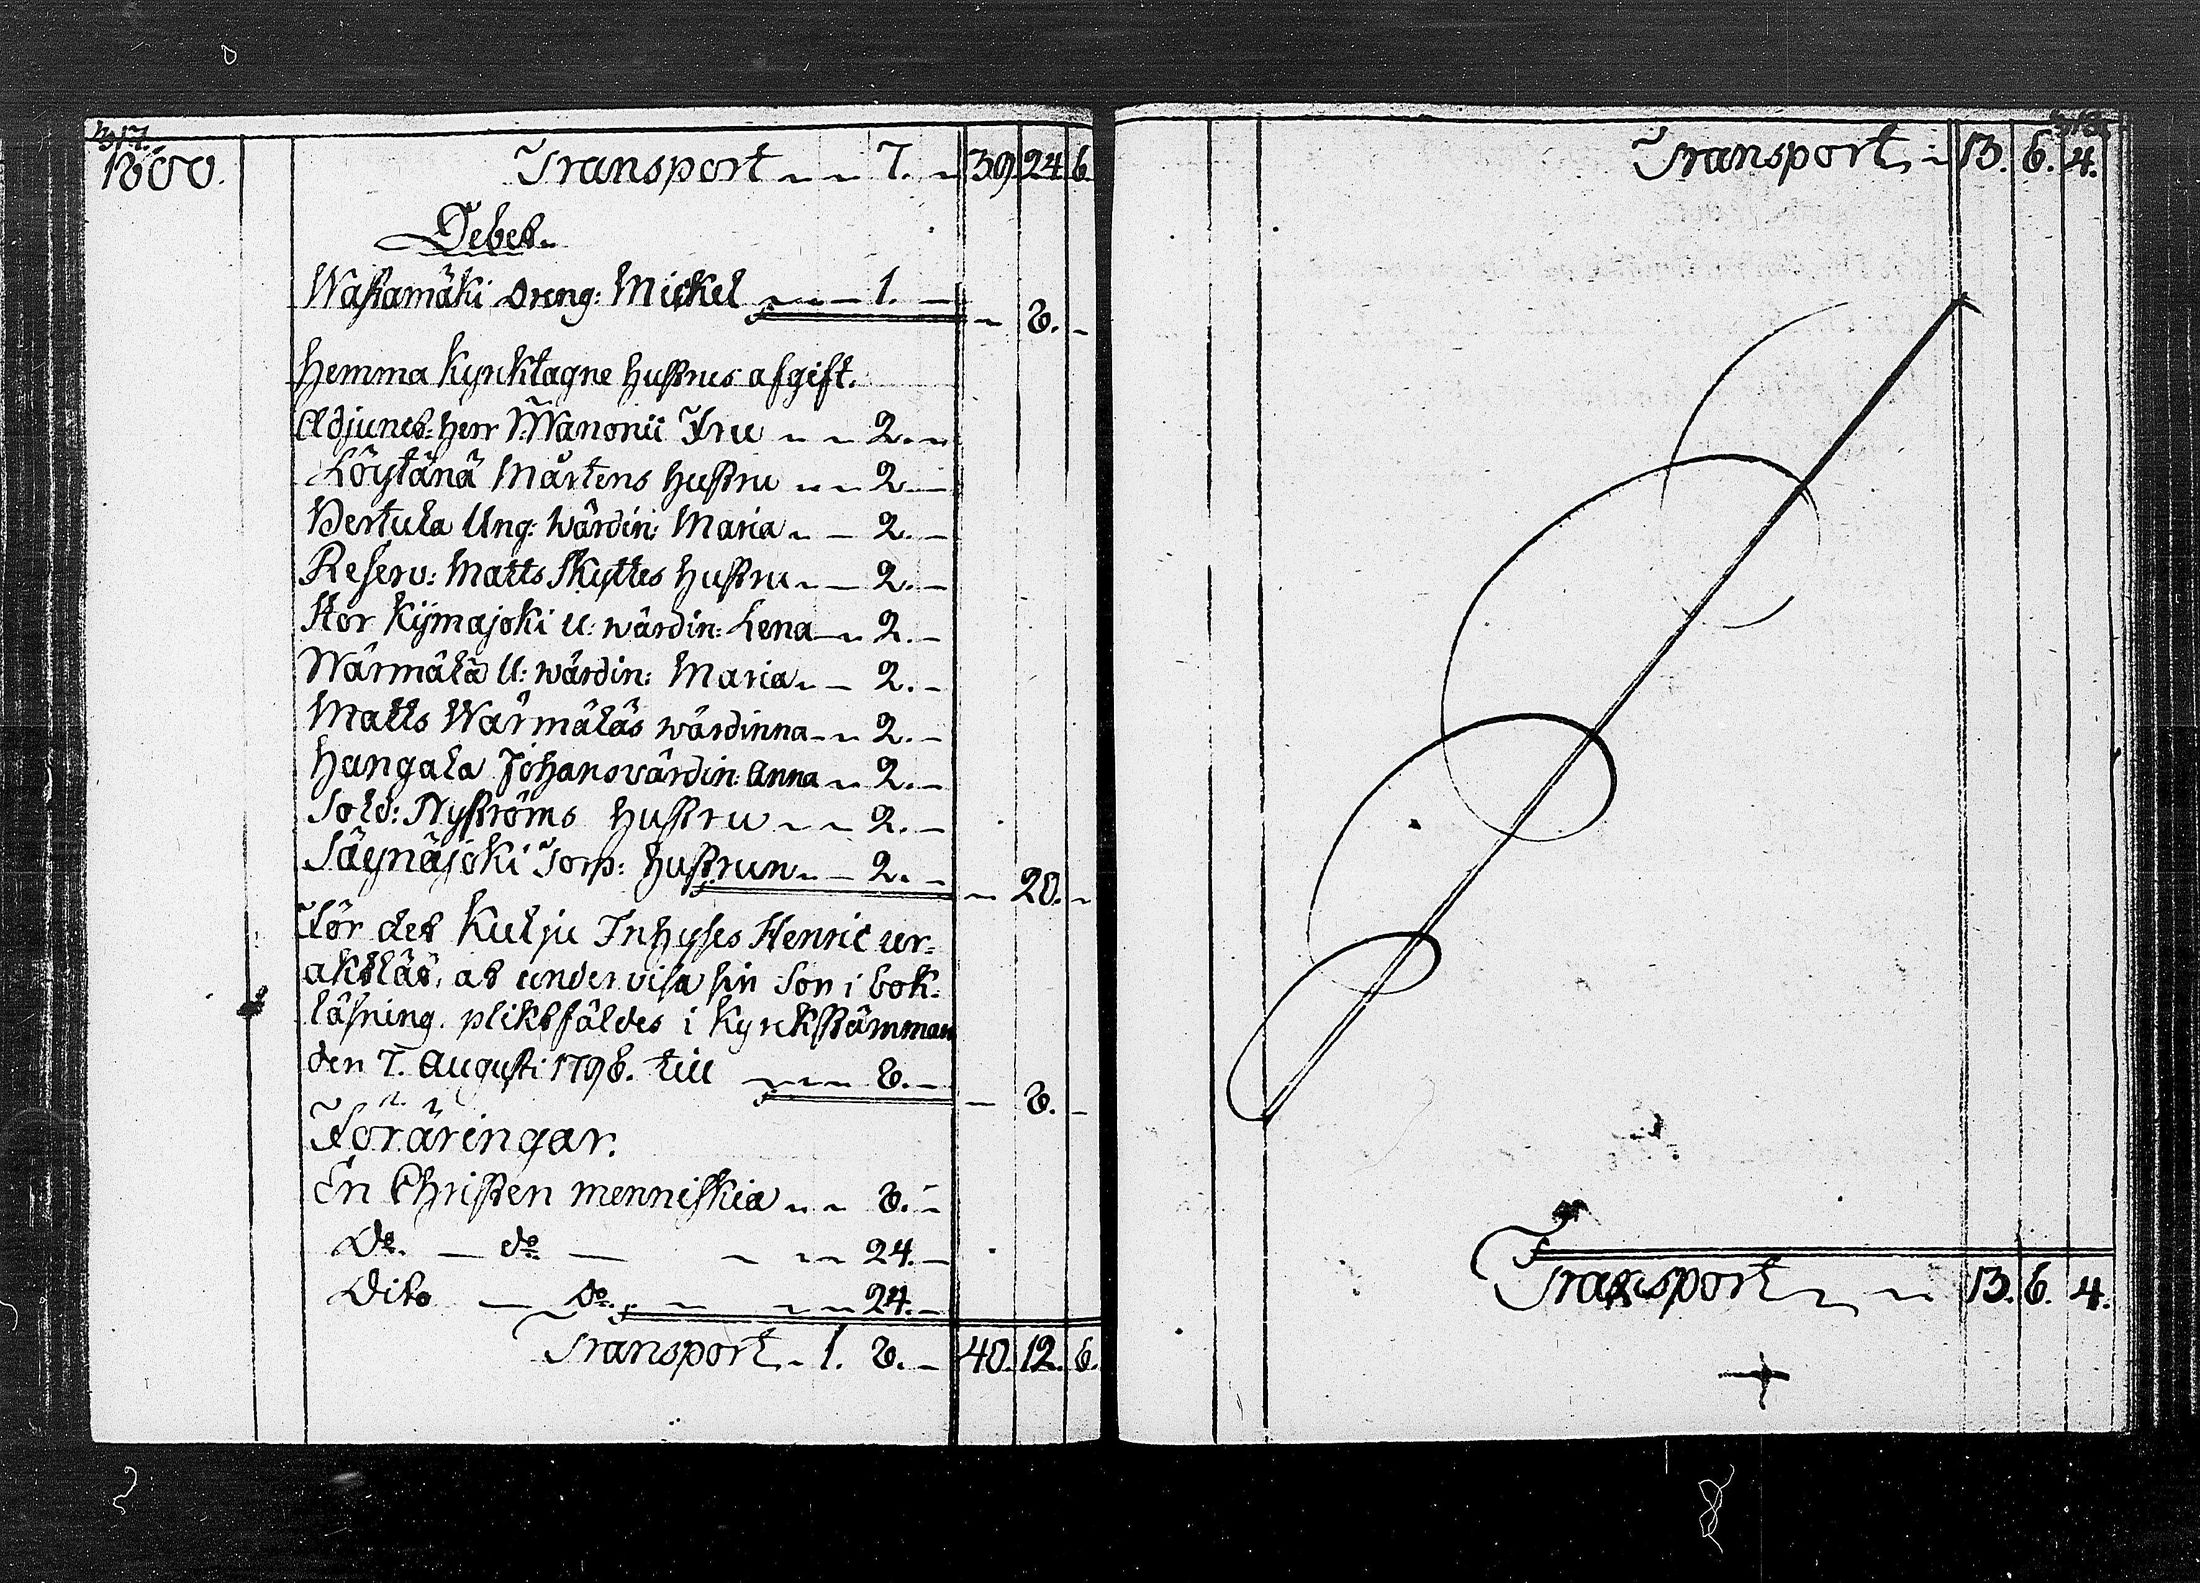 317.
1800.
Transport 7. 39. 24. 6.
Debet.
Wastamäki dreng: Mickel 1. — 8. —
Hemma kyrktagne hustrus afgift.
Adjunct: Herr Wanonii Fru 2. —
Löytänä Mårtens hustru 2. —
Pertula Ung: wärdin: Maria 2. —
Reserv: Matts Skyttes hustru 2. —
Stor Kijmajoki U: wärdin: Lena 2. —
Wärmälä U: wärdin: Maria 2. —
Matts Wärmäläs wärdinna 2. —
Hangala Johans värdin: Anna 2. —
Sold: Nyströms hustru 2. —
Säynäjoki Torp: hustrun 2. — 20. —
För det Kulju Inhyses Henric ur-
aktlåt, at undervisa sin Son i bok-
läsning. pliktfäldes i Kyrkstämman
den 7. Augusti 1798. till 8. — — 8. —
Föräringar.
En Christen menniskia 8. —
Do. — do — 24. —
Dito — do. 24. —
Transport 1. 8. — 40. 12. 6.
Transport 13. 6. 4.
Transport 13. 6. 4.